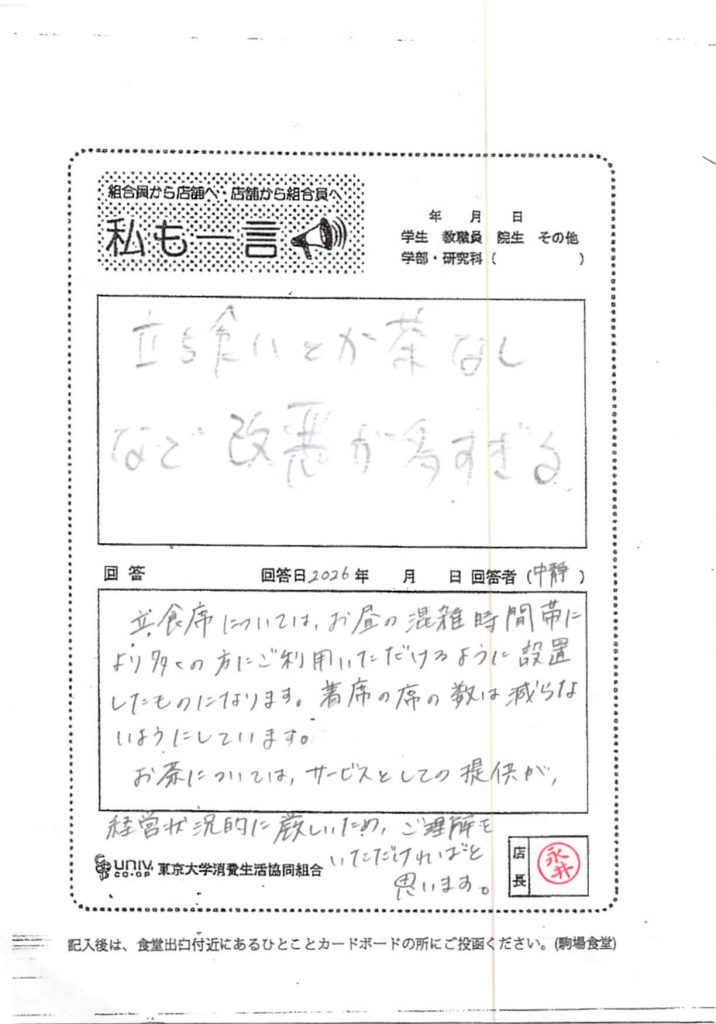 組合員から店舗へ・店舗から組合員へ
私も一言
年 月 日
学生 教職員 院生 その他
学部・研究科 ( )
立ち食いとか茶なし
など改悪が多すぎる
回答 回答日2026年 月 日 回答者 (中静)
立食席については、お昼の混雑時間帯に
より多くの方にご利用いただけるように設置
したものになります。着席の席の数は減らな
いようにしています。
お茶については、サービスとしての提供が、
経営状況的に厳しいため、ご理解を
いただければと
思います。
UNIV. CO-OP 東京大学消費生活協同組合
店長 永井
記入後は、食堂出口付近にあるひとことカードボードの所にご投函ください。(駒場食堂)